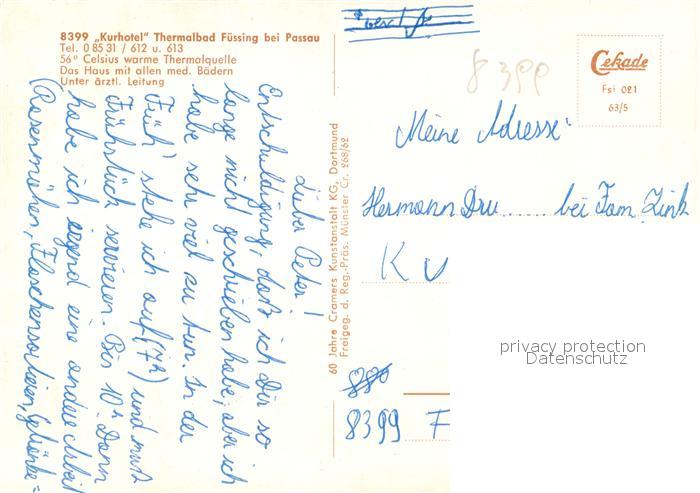 8399 „Kurhotel" Thermalbad Füssing bei Passau
Tel. 0 85 31 / 612 u. 613
56° Celsius warme Thermalquelle
Das Haus mit allen med. Bädern
Unter ärztl. Leitung
Lieber Peter!
Entschuldigung, daß ich Dir so
lange nicht geschrieben habe, aber ich
habe sehr viel zu tun. In der
Früh' stehe ich auf (7h) und muß
Frühstück servieren. Bis 10h. Dann
habe ich irgend eine andere Arbeit
(Rasenmähen, Flaschensortieren, Getränke=
60 Jahre Cramers Kunstanstalt KG, Dortmund
Freigeg. d. Reg.-Präs. Münster Cr. 268/62
8399
Cekade
Fsi 021
63/5
Meine Adresse:
Hermann Dru...... bei Fam. Zink
K U
privacy protection
Datenschutz
880
8399 F